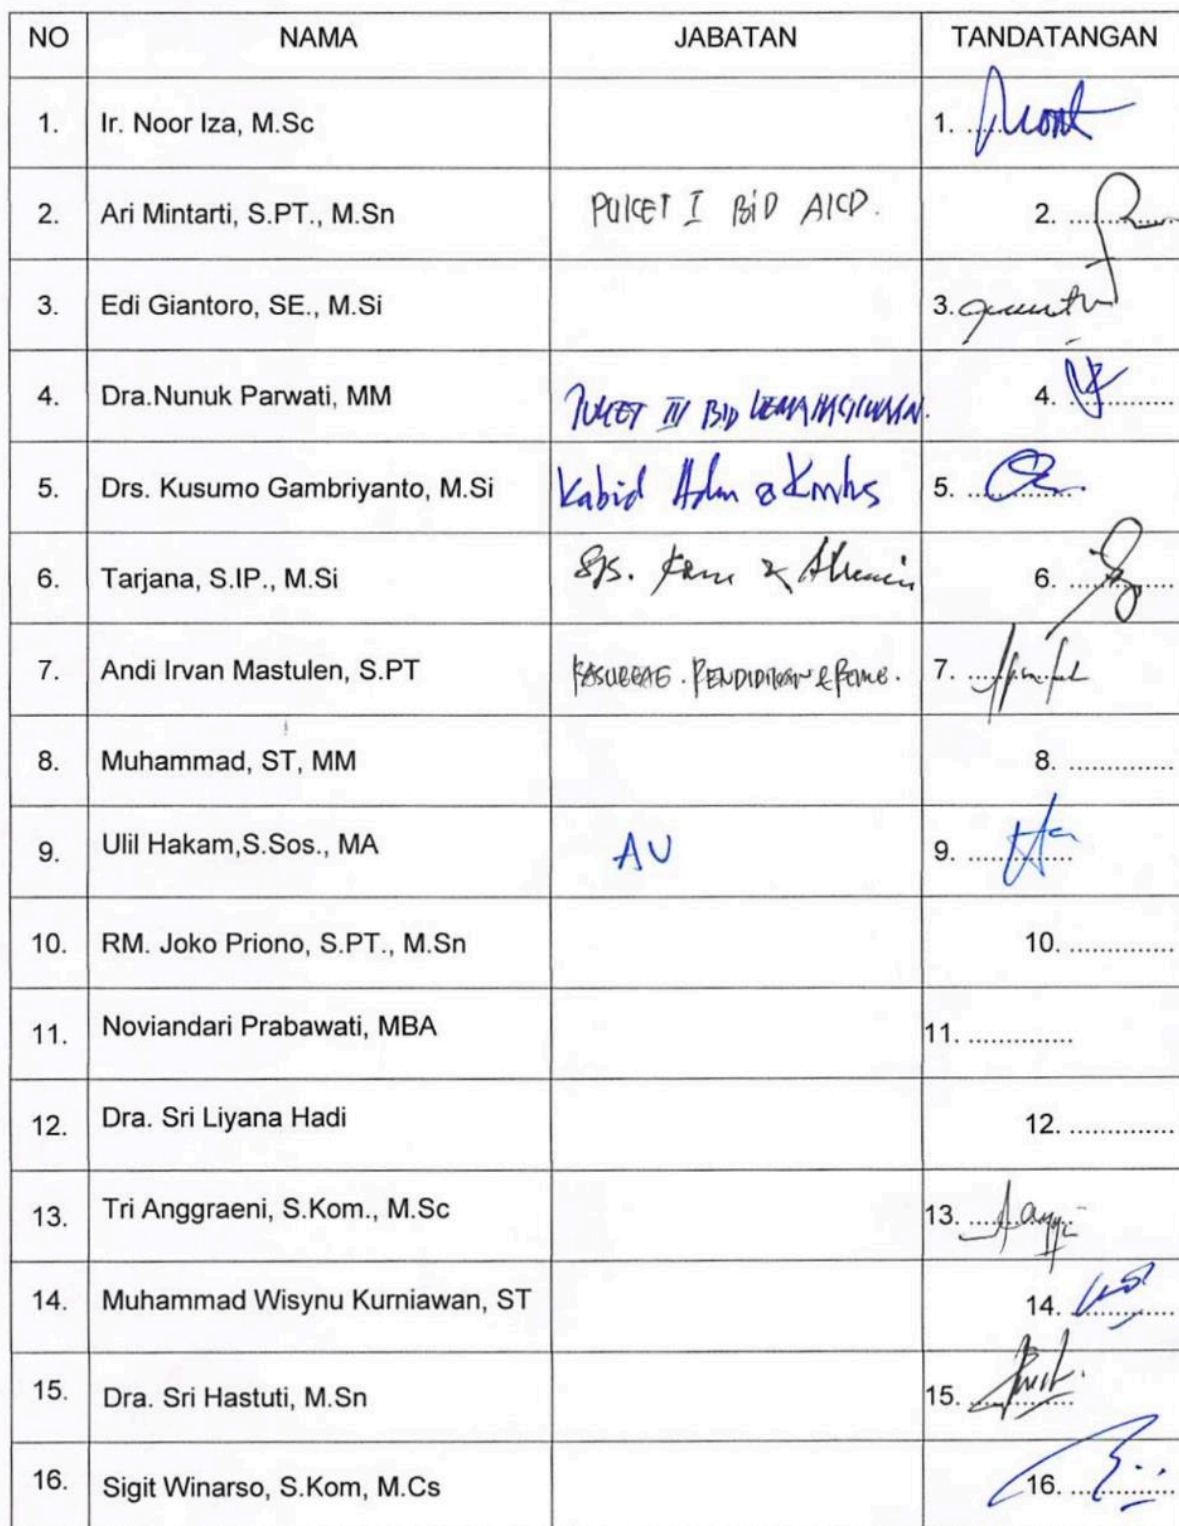 NO NAMA JABATAN TANDATANGAN
1. Ir. Noor Iza, M.Sc 1. ......
2. Ari Mintarti, S.PT., M.Sn PUKET I BiD AKD. 2. ..............
3. Edi Giantoro, SE., M.Si 3.
4. Dra.Nunuk Parwati, MM PUKET III BID KEMAHASISWAAN. 4. ..............
5. Drs. Kusumo Gambriyanto, M.Si Kabid Adm & 5. ..............
6. Tarjana, S.IP., M.Si & 6. ..............
7. Andi Irvan Mastulen, S.PT KASUBBAG. PENDIDIKAN & 7. ..............
8. Muhammad, ST, MM 8. ..............
9. Ulil Hakam,S.Sos., MA AU 9. ..............
10. RM. Joko Priono, S.PT., M.Sn 10. ..............
11. Noviandari Prabawati, MBA 11. ..............
12. Dra. Sri Liyana Hadi 12. ..............
13. Tri Anggraeni, S.Kom., M.Sc 13. ..............
14. Muhammad Wisynu Kurniawan, ST 14. ..............
15. Dra. Sri Hastuti, M.Sn 15. ..............
16. Sigit Winarso, S.Kom, M.Cs 16. ..............